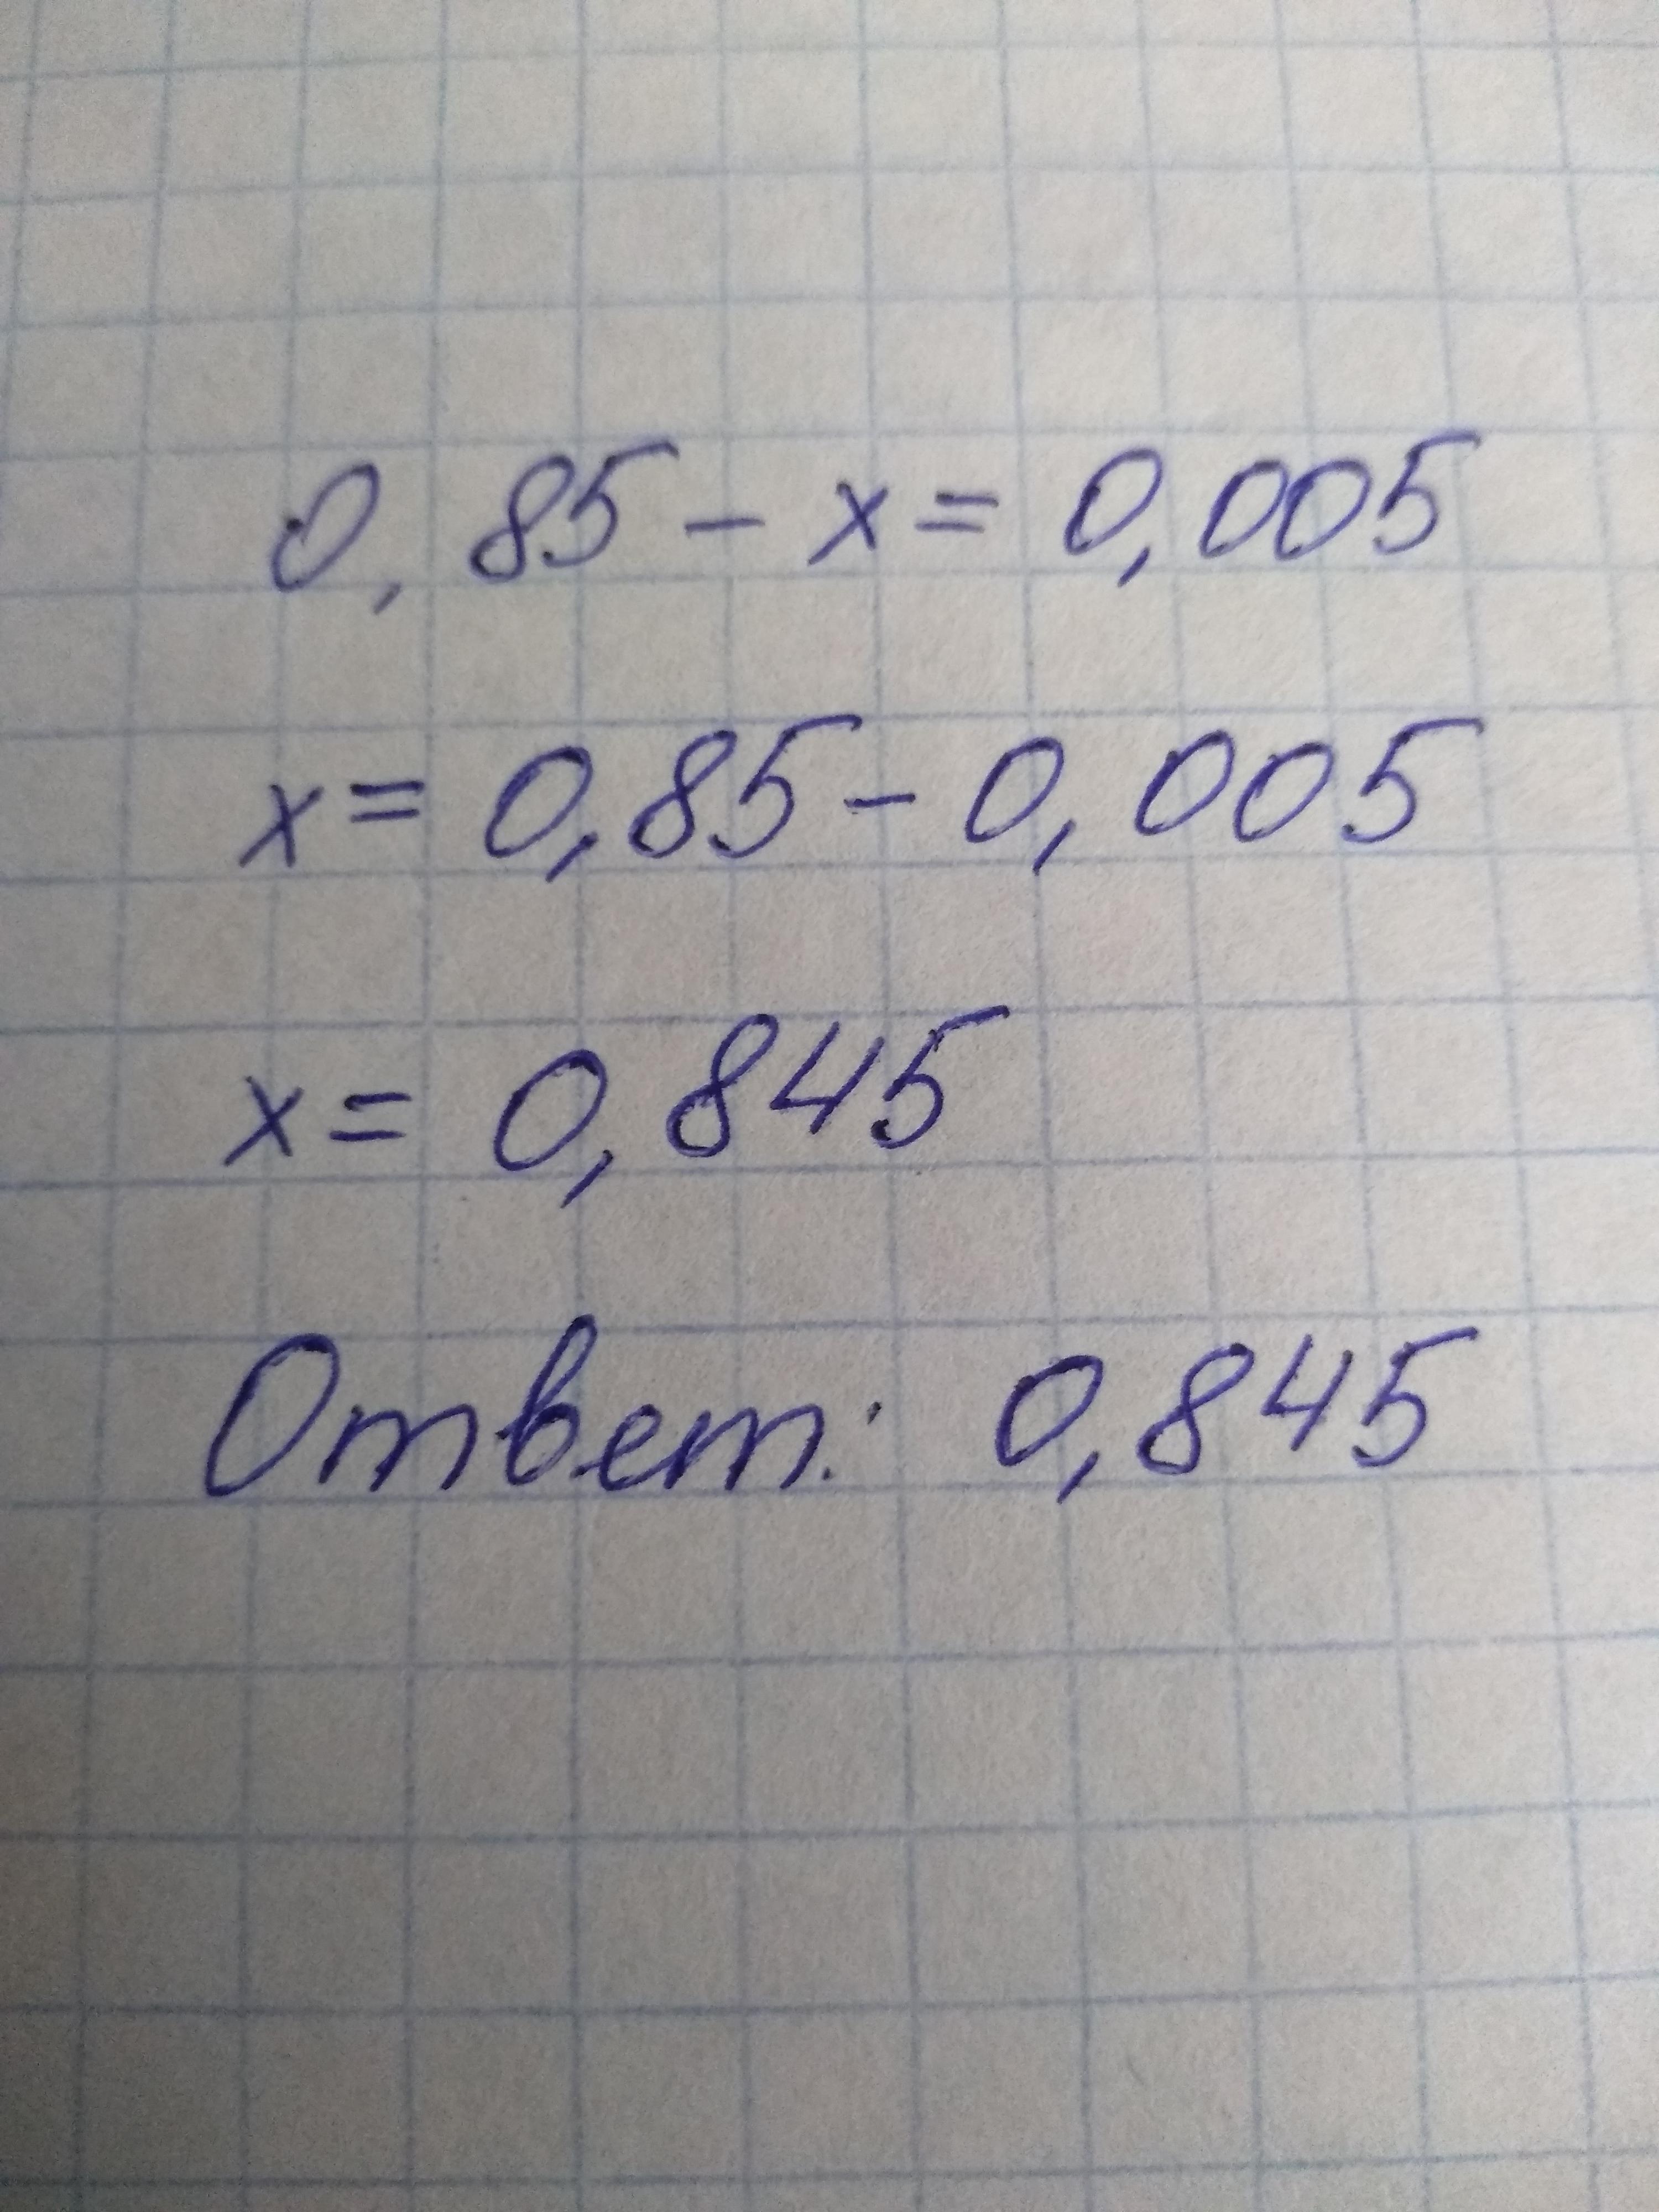 0,85 - x = 0,005
x = 0,85 - 0,005
x = 0,845
Ответ: 0,845